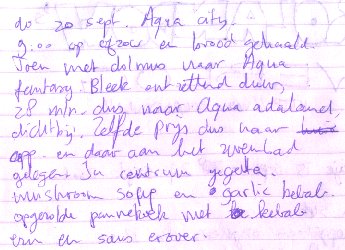 do 20 sept. Aqua city.
9.00 op en brood gehaald.
Toen met dolmus naar Aqua
fantasy. Bleek ontzettend duur,
28 mln. dus naar Aqua adaland,
dichtbij. Zelfde prijs dus naar
app. en daar aan het zwembad
gelegen. In centrum gegeten.
mushroom soup en garlic kebab.
opgerolde pannekoek met kebab
erin en saus erover.